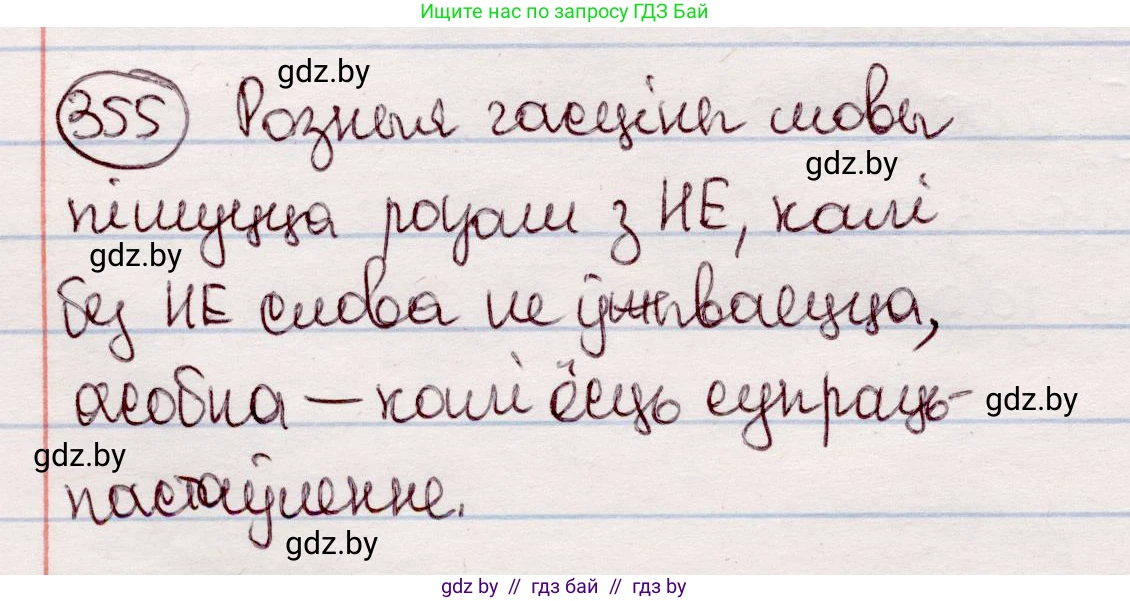 Ищите нас по запросу ГДЗ Бай
gdz.by
355 Розныя часціны мовы
gdz.by
пішуцца разам з НЕ, калі
gdz.by
без НЕ слова не ўжываецца,
асобна – калі ёсць супраць-
gdz.by
gdz.by
пастаўленне.
gdz.by
gdz by // гдз бай // гдз by